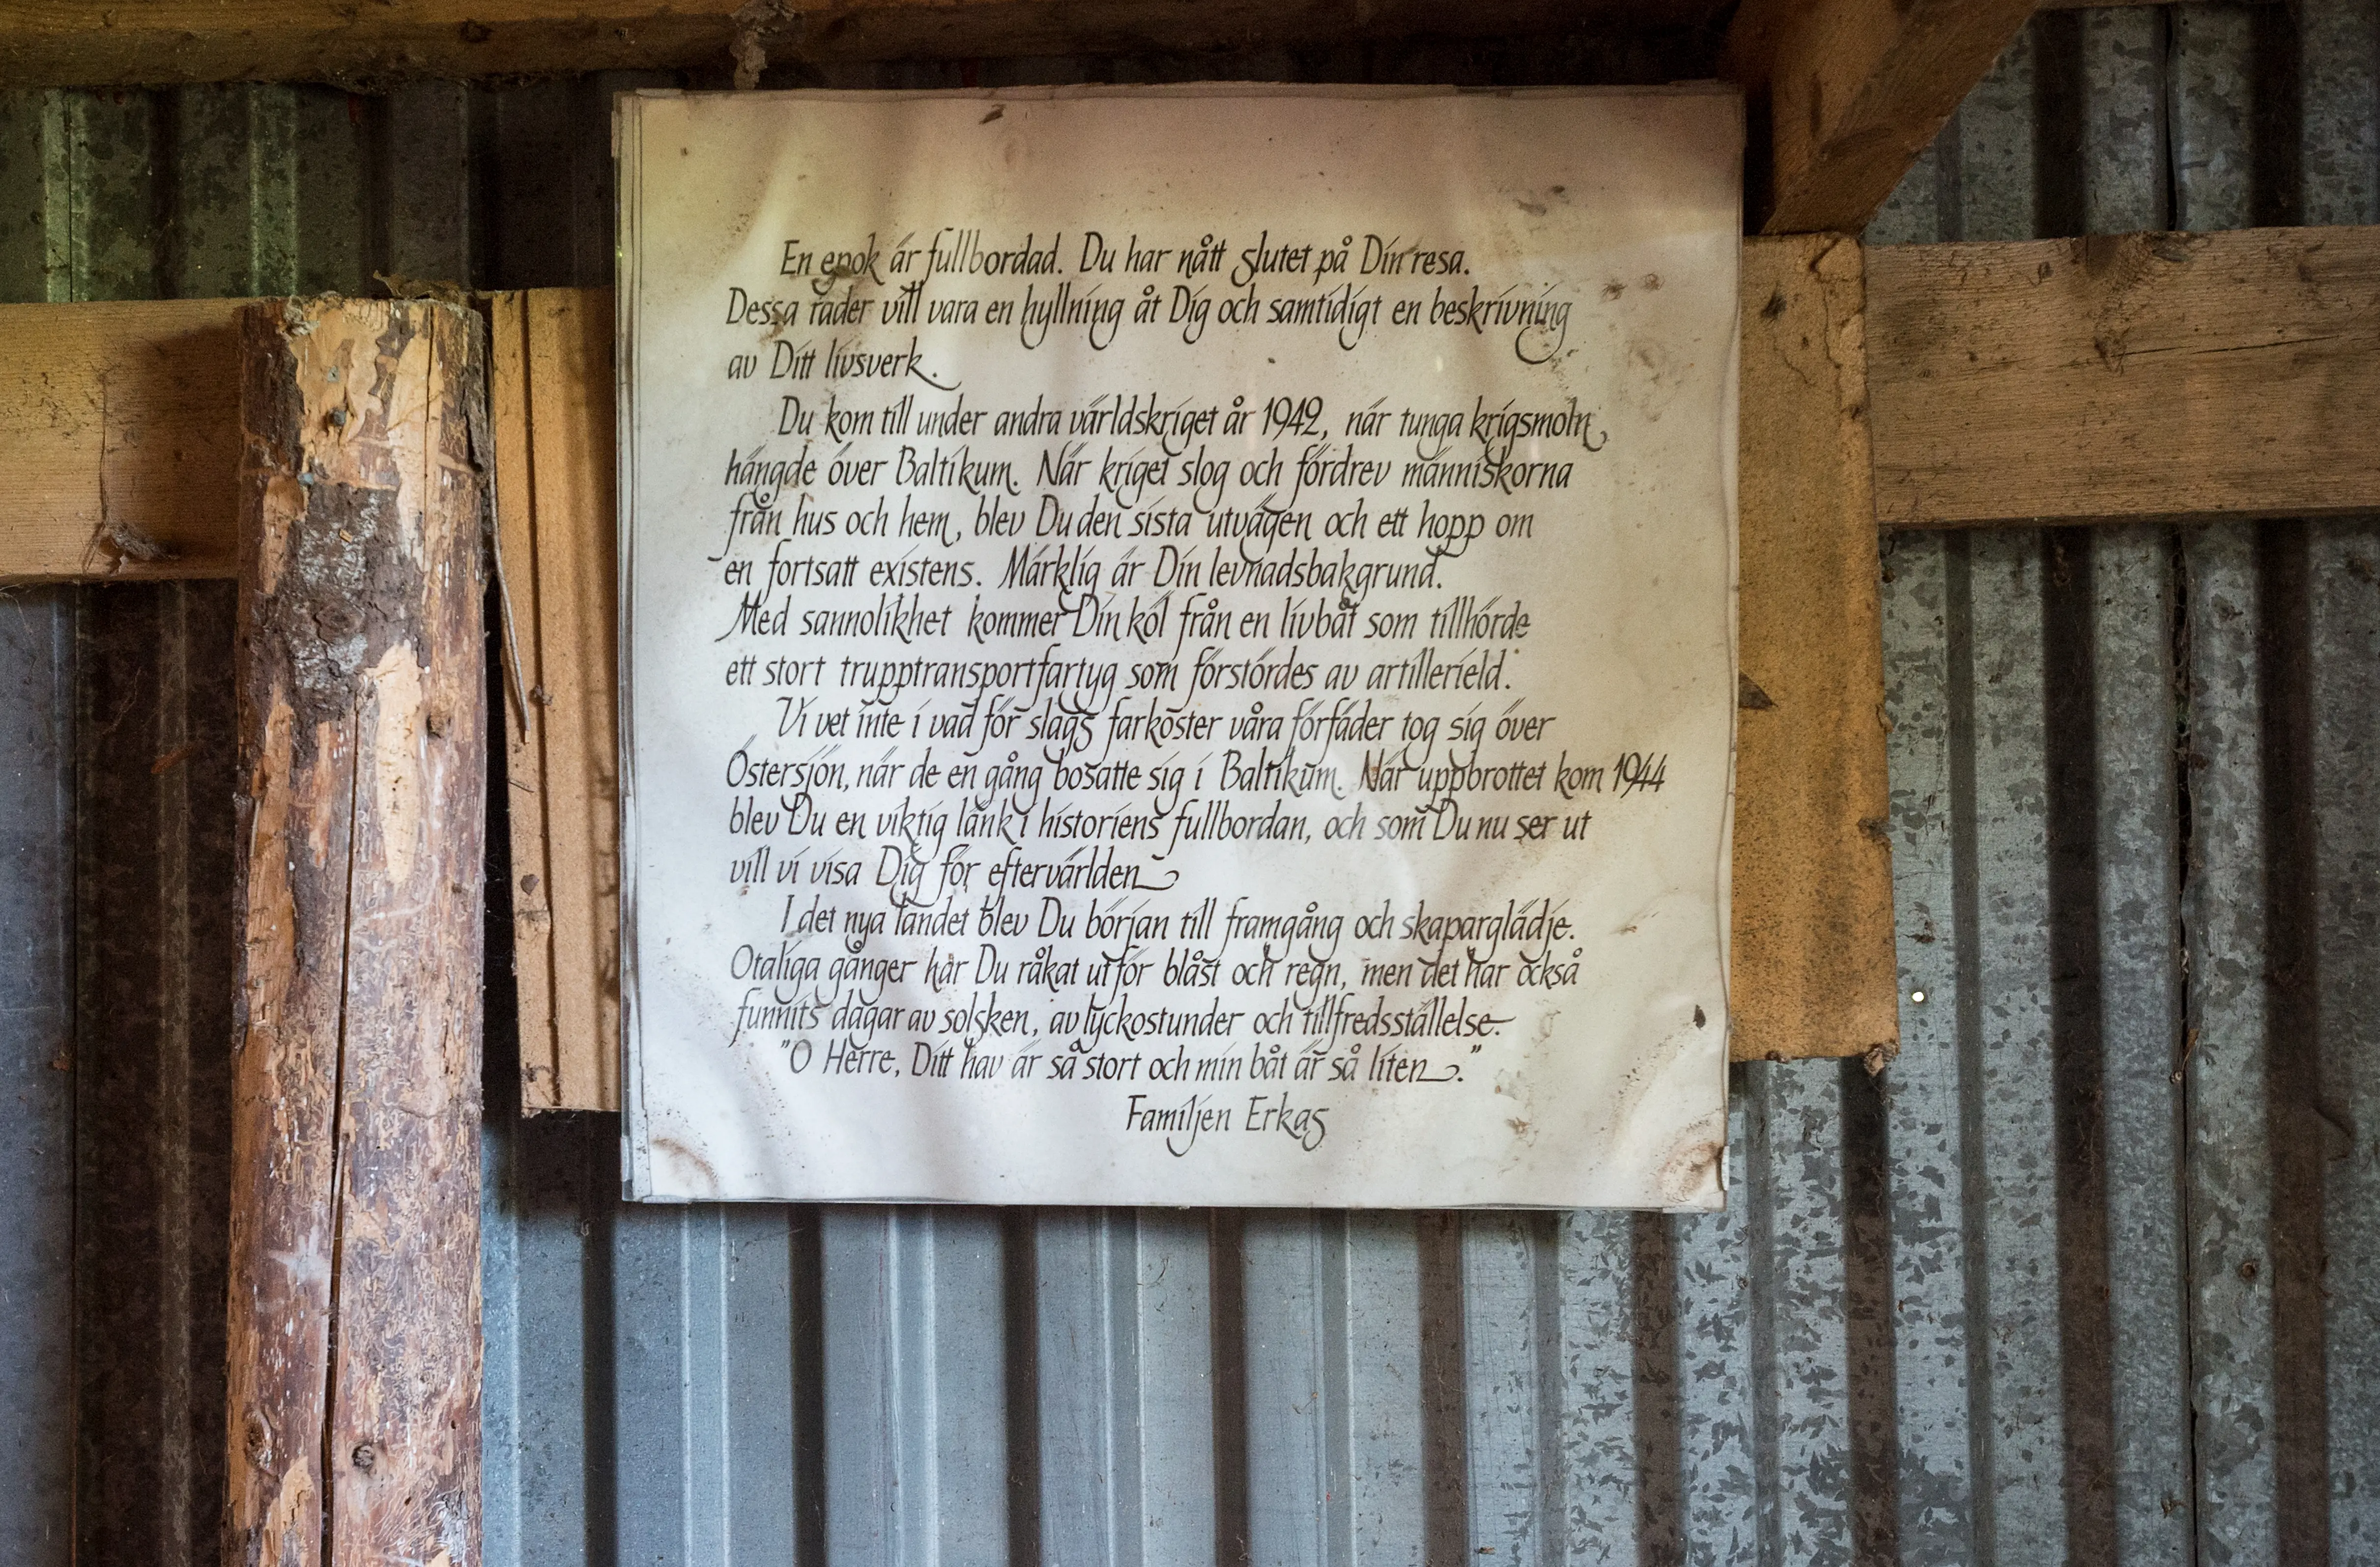 En epok är fullbordad. Du har nått slutet på Din resa.
Dessa rader vill vara en hyllning åt Dig och samtidigt en beskrivning
av Ditt livsverk.
Du kom till under andra världskriget år 1942, när tunga krigsmoln
hängde över Baltikum. När kriget slog och fördrev människorna
från hus och hem, blev Du den sista utvägen och ett hopp om
en fortsatt existens. Märklig är Din levnadsbakgrund.
Med sannolikhet kommer Din köl från en livbåt som tillhörde
ett stort trupptransportfartyg som förstördes av artillerield.
Vi vet inte i vad för slags farkoster våra förfäder tog sig över
Östersjön, när de en gång bosatte sig i Baltikum. När uppbrottet kom 1944
blev Du en viktig länk i historiens fullbordan, och som Du nu ser ut
vill vi visa Dig för eftervärlden
I det nya landet blev Du början till framgång och skaparglädje.
Otaliga gånger har Du råkat ut för blåst och regn, men det har också
funnits dagar av solsken, av lyckostunder och tillfredsställelse.
"O Herre, Ditt hav är så stort och min båt är så liten."
Familjen Erkas